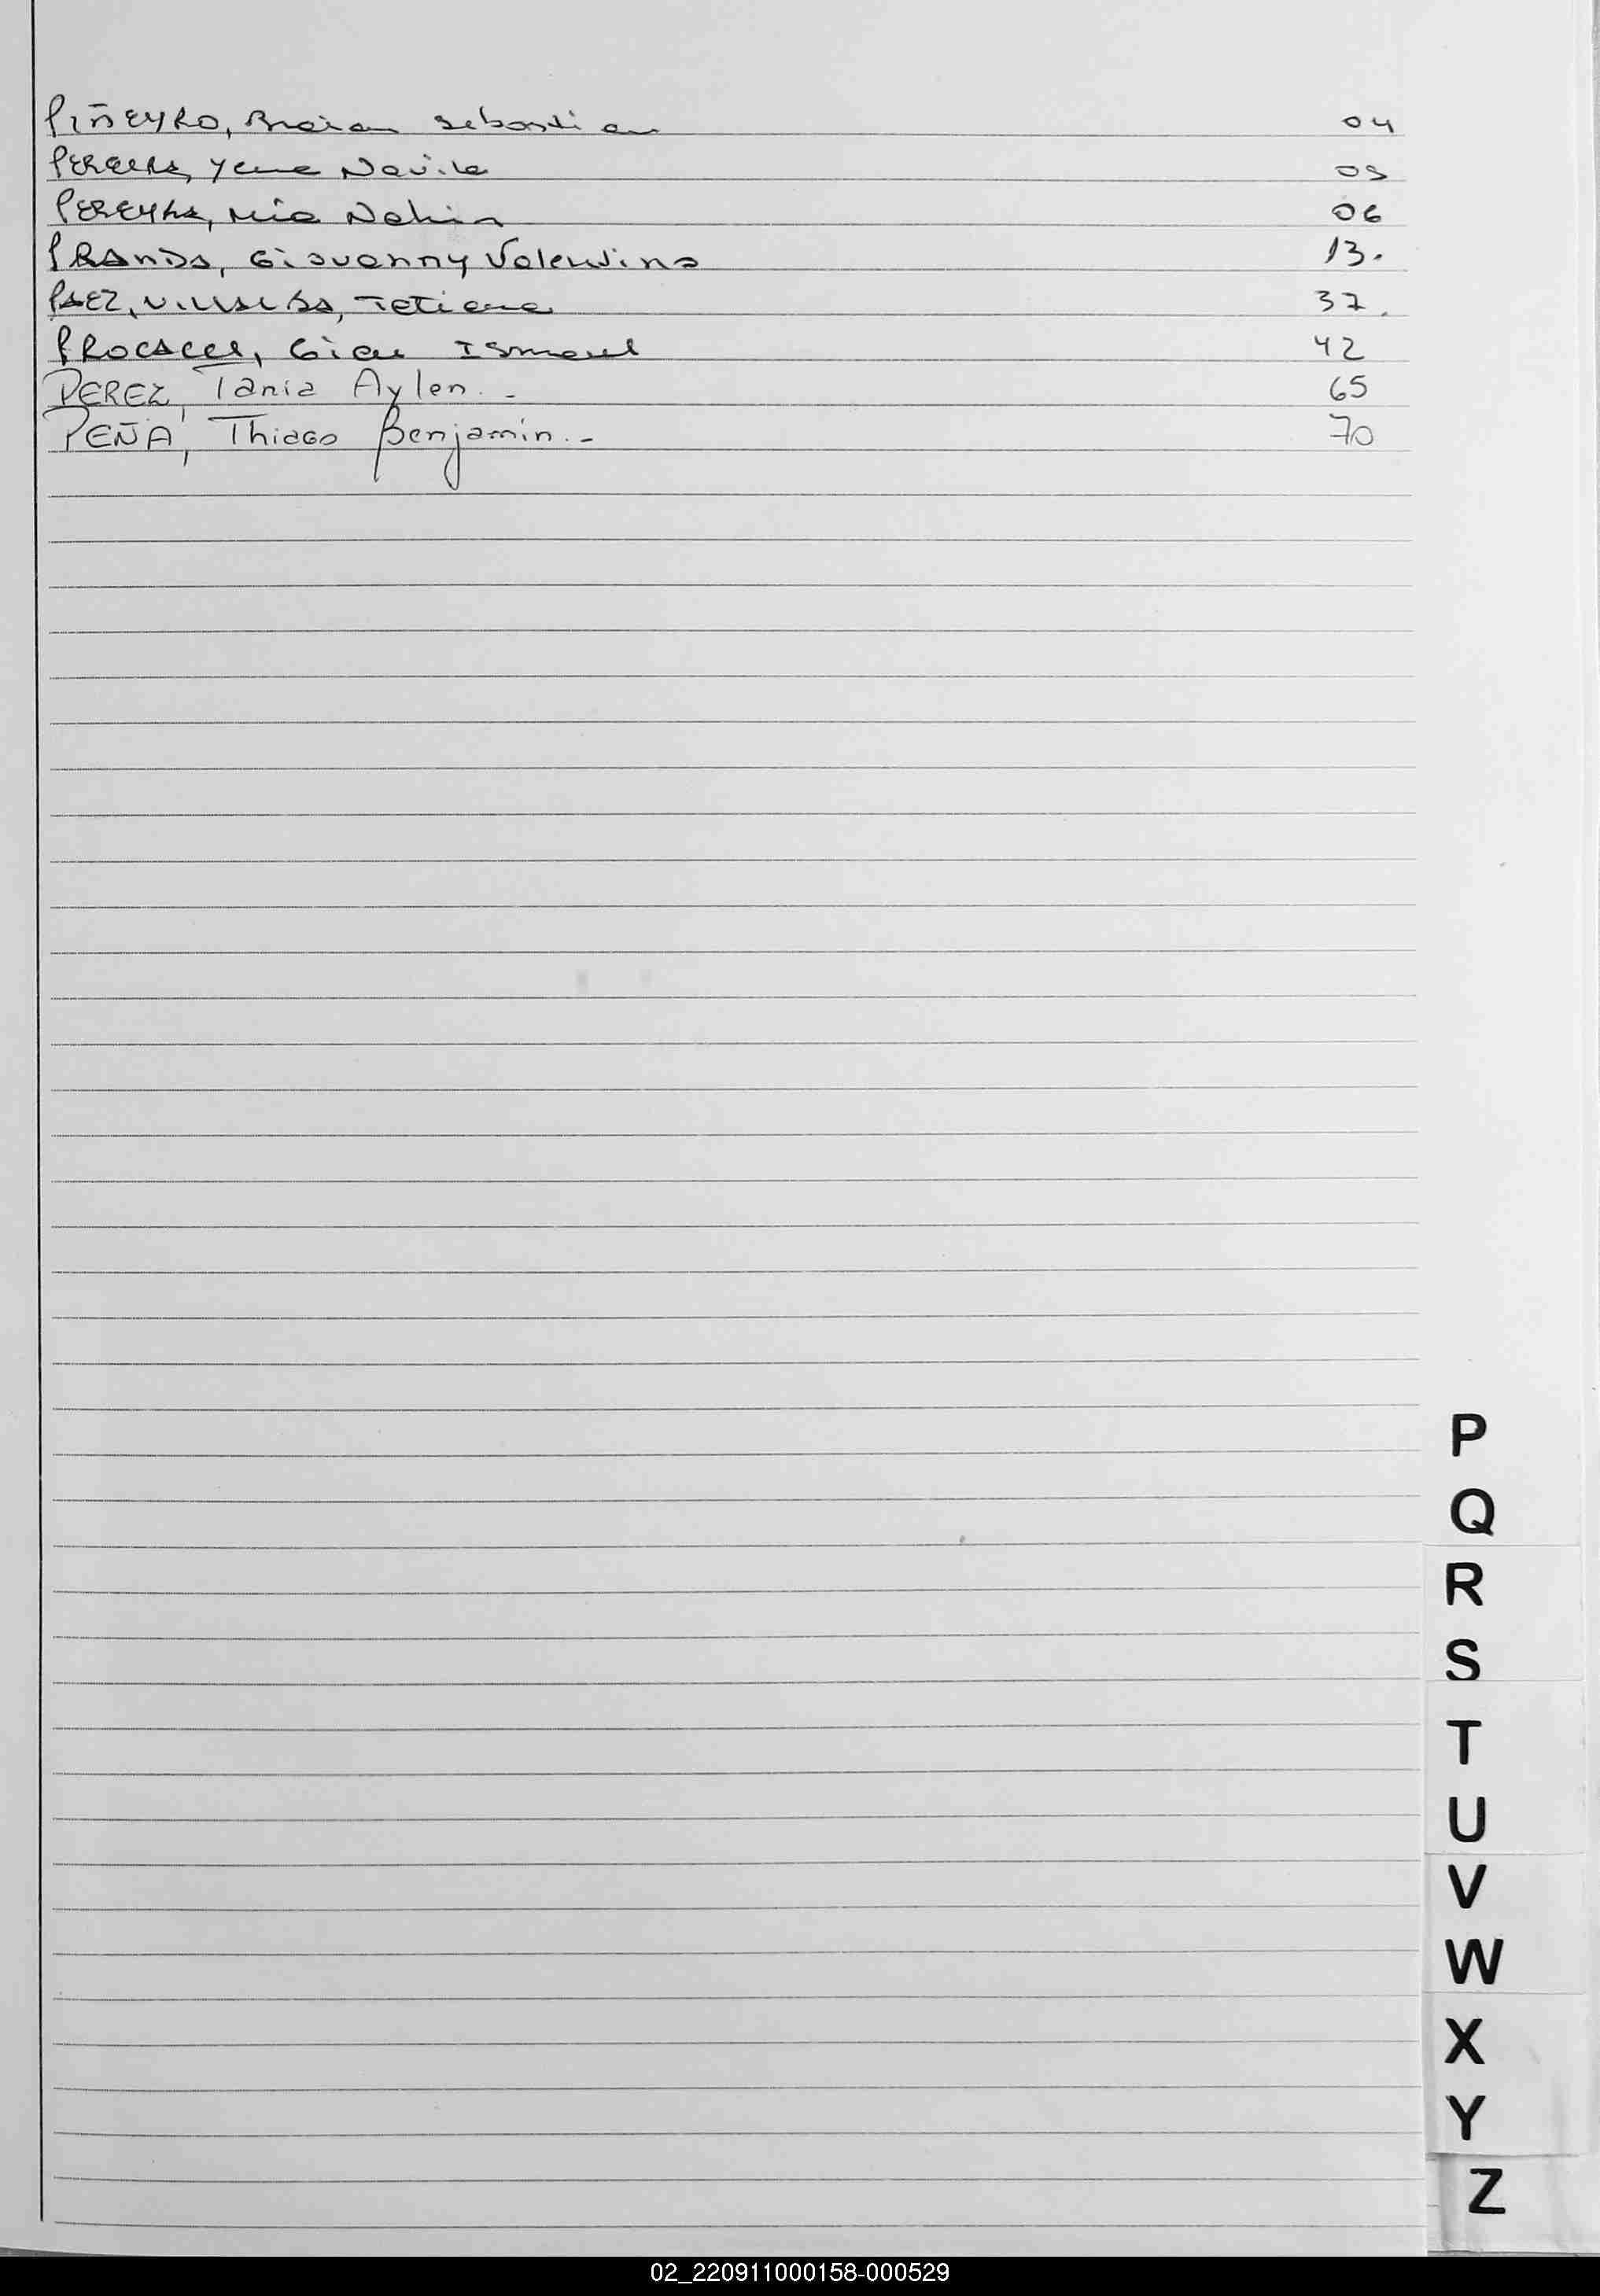 PIÑEYRO, Braian Sebastian 04
PEREIRA, Yema Naiila 05
PEREYRA, Mia Nahir 06
PRANDA, Giovanny Valentino 13.
PAEZ, VILLALBA, Tatiana 37.
PROCACCI, Gian Ismael 42
PEREZ, Tania Aylen.- 65
PEÑA, Thiago Benjamin.- 70
P
Q
R
S
T
U
V
W
X
Y
Z
02_220911000158-000529